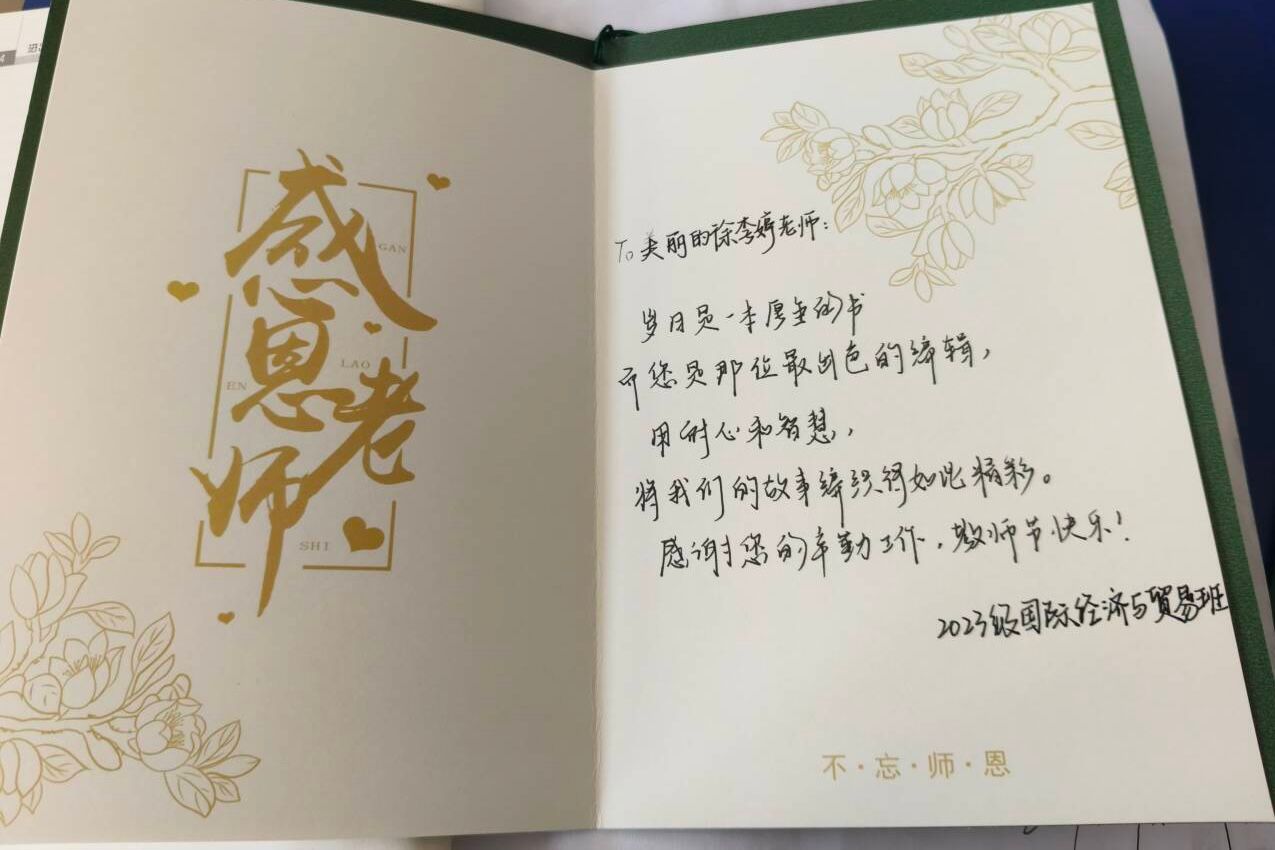 感恩老师
GAN
EN
LAO
SHI
To 美丽的徐李婷老师：
岁月是一本厚重的书
而您是那位最出色的编辑，
用耐心和智慧，
将我们的故事编织得如此精彩。
感谢您的辛勤工作，教师节快乐！
2023级国际经济与贸易班
不·忘·师·恩